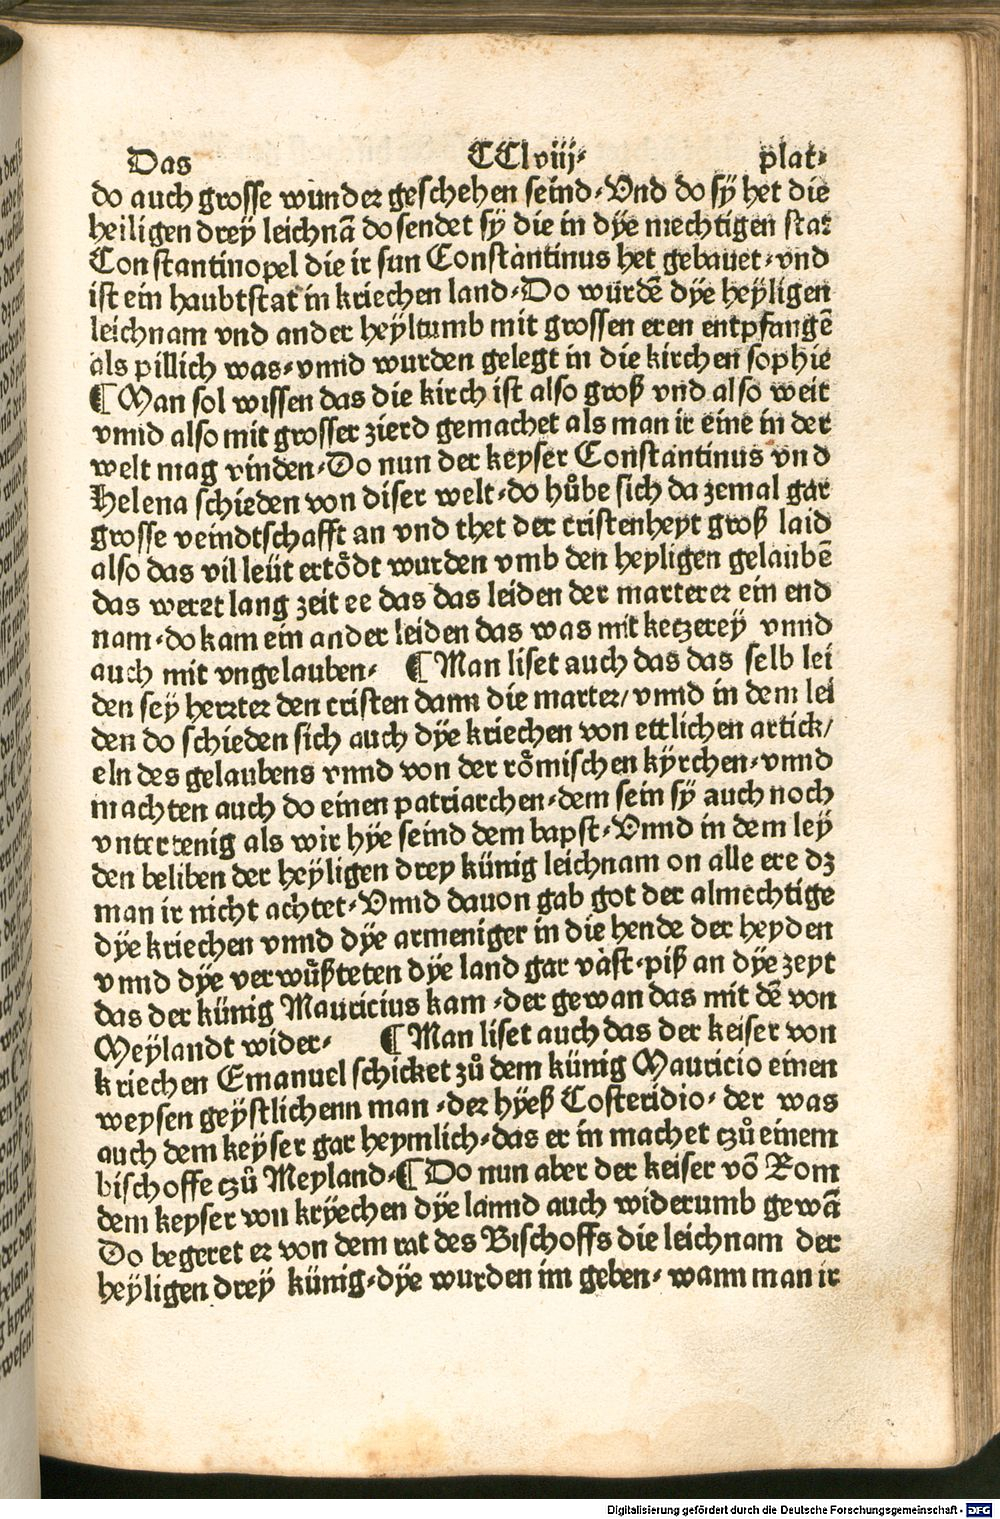 Das CClviij· plat·
do auch grosse wunder geschehen seind·Vnd do sÿ het die
heiligen dreÿ leichnã do sendet sÿ die in dÿe mechtigen stat
Constantinopel die ir sun Constantinus het gebauet·vnd
ist ein haubtstat in kriechen land·Do wurdẽ dÿe heÿligen
leichnam vnd ander heÿltumb mit grossen eren entpfangẽ
als pillich was·vnnd wurden gelegt in die kirchen sophie
¶ Man sol wissen das die kirch ist also groß vnd also weit
vnnd also mit grosser zierd gemachet als man ir eine in der
welt mag vinden·Do nun der keyser Constantinus vnd
Helena schieden von diser welt·do hůbe sich da zemal gar
grosse veindtschafft an vnd thet der cristenheyt groß laid
also das vil leüt ertoͤdt wurden vmb den heyligen gelaubẽ
das weret lang zeit ee das das leiden der marterer ein end
nam·do kam ein ander leiden das was mit ketzereÿ vnnd
auch mit vngelauben· ¶ Man liset auch das das selb lei
den seÿ herter den cristen dann die marter/vnnd in dem lei
den do schieden sich auch dÿe kriechen von ettlichen artick/
eln des gelaubens vnnd von der roͤmischen kÿrchen·vnnd
machten auch do einen patriarchen·dem sein sÿ auch noch
vntertenig als wir hÿe seind dem bapst·Vnnd in dem leÿ
den beliben der heÿligen drey künig leichnam on alle ere dz
man ir nicht achtet·Vnnd dauon gab got der almechtige
dÿe kriechen vnnd dÿe armeniger in die hende der heyden
vnnd dÿe verwůßteten dÿe land gar vàst·piß an dÿe zeyt
das der künig Mauricius kam ·der gewan das mit dẽ von
Meÿlandt wider· ¶ Man liset auch das der keiser von
kriechen Emanuel schicket zů dem künig Mauricio einen
weysen geÿstlichenn man ·der hÿeß Costeridio· der was
auch dem keÿser gar heymlich·das er in machet czů einem
bischoffe czů Meyland·¶ Do nun aber der keiser võ Rom
dem keyser von krÿechen dÿe lannd auch widerumb gewã
Do begeret er von dem rat des Bischoffs die leichnam der
heÿligen dreÿ künig·dÿe wurden im geben· wann man ir
Digitalisierung gefördert durch die Deutsche Forschungsgemeinschaft - DFG